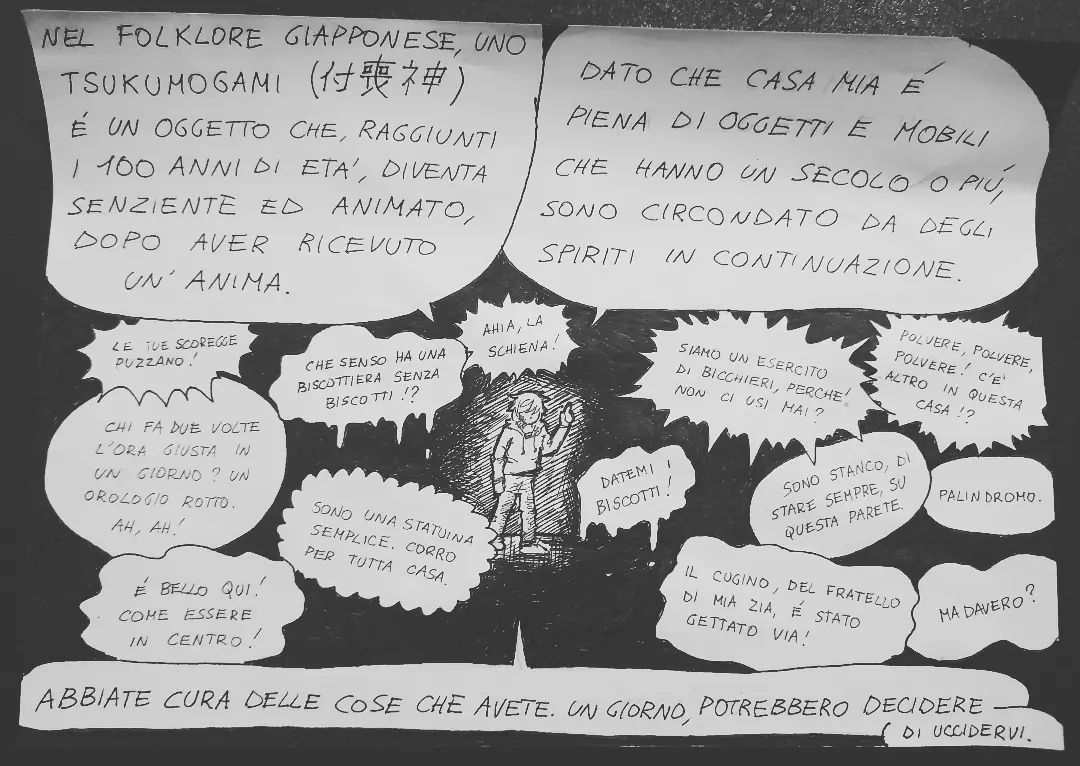 NEL FOLKLORE GIAPPONESE, UNO
TSUKUMOGAMI (付喪神)
É UN OGGETTO CHE, RAGGIUNTI
I 100 ANNI DI ETA', DIVENTA
SENZIENTE ED ANIMATO,
DOPO AVER RICEVUTO
UN' ANIMA.
DATO CHE CASA MIA É
PIENA DI OGGETTI E MOBILI
CHE HANNO UN SECOLO O PIÚ,
SONO CIRCONDATO DA DEGLI
SPIRITI IN CONTINUAZIONE.
LE TUE SCOREGGE
PUZZANO!
CHE SENSO HA UNA
BISCOTTIERA SENZA
BISCOTTI!?
AHIA, LA
SCHIENA!
SIAMO UN ESERCITO
DI BICCHIERI, PERCHE'
NON CI USI MAI?
POLVERE, POLVERE,
POLVERE! C'E'
ALTRO IN QUESTA
CASA!?
CHI FA DUE VOLTE
L'ORA GIUSTA IN
UN GIORNO? UN
OROLOGIO ROTTO.
AH, AH!
SONO UNA STATUINA
SEMPLICE. CORRO
PER TUTTA CASA.
DATEMI I
BISCOTTI!
SONO STANCO, DI
STARE SEMPRE, SU
QUESTA PARETE.
PALINDROMO.
É BELLO QUI!
COME ESSERE
IN CENTRO!
IL CUGINO, DEL FRATELLO
DI MIA ZIA, É STATO
GETTATO VIA!
MA DAVERO?
ABBIATE CURA DELLE COSE CHE AVETE. UN GIORNO, POTREBBERO DECIDERE
DI UCCIDERVI.